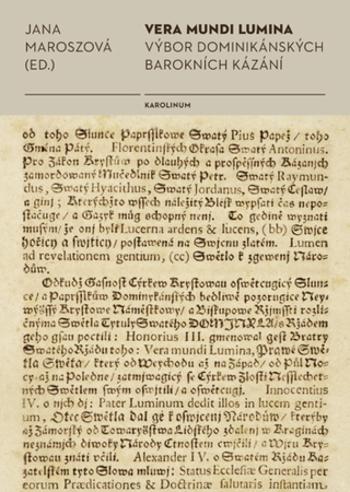 JANA
MAROSZOVÁ
(ED.)
VERA MUNDI LUMINA
VÝBOR DOMINIKÁNSKÝCH
BAROKNÍCH KÁZÁNÍ
KAROLINUM
od toho Slunce Paprsslkowe Swatý Pius Papež / toho
Gména Pátý. Florentinských Okrasa Swatý Antoninus.
Pro Zákon Krystůw po dlauhých a prospěssných Kázanjch
zamordowaný Mučedlník Swatý Petr. Swatý Raymun-
dus, Swatý Hyacinthus, Swatý Jordanus, Swatý Czeslaw/
a ginj ; Kterýchžto wssech náležitý Blesk wypsati čas nepo-
stačuge / a Gazyk můg schopný nenj. To gedině wyznati
musým/ že onj byli Lucerna ardens & lucens, (bb) Swjce
hořjcy a swjtjcy / postawená na Swjcnu zlatém. Lumen
ad revelationem gentium, (cc) Swětlo k zgewenj Náro-
důw.
Odkudž Gasnost Cýrkew Krystowau oswětcugicý Slun-
ce / a Paprsslkůw Dominykánských bedliwě pozorugice Ney-
wyšssý Krystowé Náměstkowy / a Biskupowe Rzjmsstí rozli-
čnýma Swětla Tytuly Swatého DOMINIKA/ s Rzádem
geho gsau poctili : Honorius III. gmenowal gest Bratry
Swatého Rzádu toho : Vera mundi Lumina, Prawé Swě-
tla Swěta / kterj od Weychodu až na Západ / od Půl No-
cy až na Poledne / zatmjwagicý se Cýrkew Zlostí Nessleche-
tných Swětlem swým oswjtili / a oswětcugj. Innocentius
IV. o njch dj : Pater Luminum dedit illos in lucem genti-
um, Otec Swětla dal gé k oswjcenj Národůw / kterýby
až Zámorský od Towaryšstwa Lidského zdalenj w Kraginách
neznámých diwoký Národy Ctnostem cwjčili / a Wjru Kry-
stowau znáti včili. Alexander IV. o Swatém Rzádu Ka-
zatelském tyto Slowa mluwj : Status Ecclesiæ Generalis per
eorum Prædicationes & Doctrinæ salutaris instantiam,